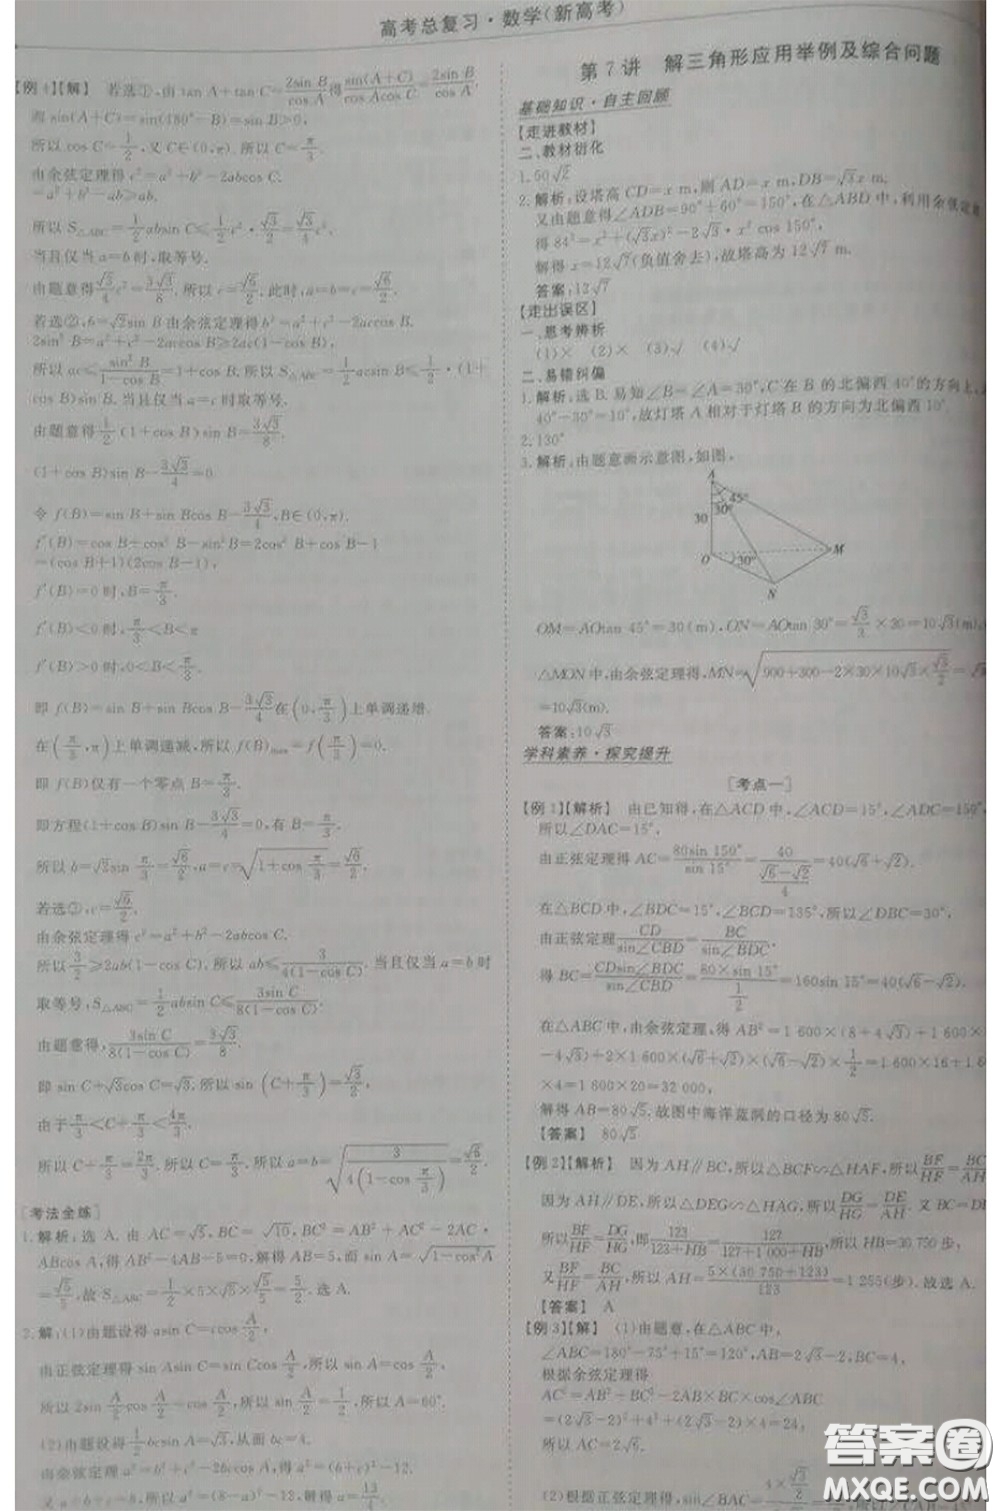 高考总复习·数学(新高考)
【例4】【解】 若选①,由tan A+tan C=2sin B/cos A得sin(A+C)/cos Acos C=2sin B/cos A,
而sin(A+C)=sin(180°-B)=sin B>0,
所以cos C=1/2,又C∈(0,π).所以C=π/3.
由余弦定理得c²=a²+b²-2abcos C.
=a²+b²-ab≥ab.
所以S△ABC=1/2absin C≤1/2c²·√3/2=√3/4c²,
当且仅当a=b时,取等号.
由题意得√3/4c²=3√3/8.所以c=√6/2.此时,a=b=c=√6/2.
若选②,b=√2sin B由余弦定理得b²=a²+c²-2accos B.
2sin²B=a²+c²-2accos B≥2ac(1-cos B),
所以ac≤sin²B/1-cos B=1+cos B.所以S△ABC=1/2acsin B≤1/2·(1+
cos B)sin B.当且仅当a=c时取等号.
由题意得1/2(1+cos B)sin B=3√3/8.
(1+cos B)sin B-3√3/4=0
令f(B)=sin B+sin Bcos B-3√3/4,B∈(0,π).
f′(B)=cos B+cos²B-sin²B=2cos²B+cos B-1
=(cos B+1)(2cos B-1),
f′(B)=0时,B=π/3.
f′(B)<0时,π/3<B<π
f′(B)>0时,0<B<π/3.
即f(B)=sin B+sin Bcos B-3√3/4在(0,π/3)上单调递增.
在(π/3,π)上单调递减,所以f(B)max=f(π/3)=0.
即f(B)仅有一个零点B=π/3.
即方程(1+cos B)sin B-3√3/4=0,有B=π/3.
所以b=√2sin π/3=√6/2,a=c=√(1+cos π/3)=√6/2.
若选③,c=√6/2.
由余弦定理得c²=a²+b²-2abcos C.
所以3/2≥2ab(1-cos C).所以ab≤3/4(1-cos C).当且仅当a=b时
取等号,S△ABC=1/2absin C≤3sin C/8(1-cos C).
由题意得,3sin C/8(1-cos C)=3√3/8.
即sin C+√3cos C=√3.所以sin(C+π/3)=√3/2,
由于π/3<C+π/3<4π/3.
所以C+π/3=2π/3.所以C=π/3,所以a=b=√(3/4(1-cos π/3))=√6/2.
[考法全练]
1.解析:选A.由AC=√5,BC=√10,BC²=AB²+AC²-2AC·
ABcos A,得AB²-4AB-5=0,解得AB=5,而sin A=√(1-cos²A)
=√5/5,故S△ABC=1/2×5×√5×√5/5=5/2.选A.
2.解:(1)由题设得asin C=ccos A/2,
由正弦定理得sin Asin C=sin Ccos A/2,所以sin A=cos A/2,
所以2sin A/2cos A/2=cos A/2,所以sin A/2=1/2,所以A=60°.
(2)由题设得1/2bcsin A=√3,从而bc=4.
由余弦定理a²=b²+c²-2bccos A,得a²=(b+c)²-12.
又a+b+c=8,所以a²=(8-a)²-12,解得a=13/4.
第7讲 解三角形应用举例及综合问题
基础知识·自主回顾
【走进教材】
二、教材衍化
1.50√2
2.解析:设塔高CD=x m,则AD=x m,DB=√3x m.
又由题意得∠ADB=90°+60°=150°,在△ABD中,利用余弦定理
得84²=x²+(√3x)²-2√3·x²cos 150°,
解得x=12√7(负值舍去),故塔高为12√7 m.
答案:12√7
【走出误区】
一、思考辨析
(1)× (2)× (3)√ (4)√
二、易错纠偏
1.解析:选B.易知∠B=∠A=30°,C在B的北偏西40°的方向上,
40°-30°=10°,故灯塔A相对于灯塔B的方向为北偏西10°.
2.130°
3.解析:由题意画示意图,如图,
A
45°
30°
30
O
30°
M
N
OM=AOtan 45°=30(m),ON=AOtan 30°=√3/3×30=10√3(m),
△MON中,由余弦定理得,MN=√(900+300-2×30×10√3×√3/2)=
=10√3(m).
答案:10√3
学科素养·探究提升
[考点一]
【例1】【解析】 由已知得,在△ACD中,∠ACD=15°,∠ADC=150°,
所以∠DAC=15°,
由正弦定理得AC=80sin 150°/sin 15°=40/((√6-√2)/4)=40(√6+√2).
在△BCD中,∠BDC=15°,∠BCD=135°,所以∠DBC=30°,
由正弦定理CD/sin∠CBD=BC/sin∠BDC,
得BC=CDsin∠BDC/sin∠CBD=80×sin 15°/(1/2)=160sin 15°=40(√6-√2).
在△ABC中,由余弦定理,得AB²=1 600×(8+4√3)+1 600×
-4√3)+2×1 600×(√6+√2)×(√6-√2)×1/2=1 600×16+1 600
×4=1 600×20=32 000,
解得AB=80√5.故图中海洋蓝洞的口径为80√5.
【答案】 80√5
【例2】【解析】 因为AH∥BC,所以△BCF∽△HAF,所以BF/HF=BC/
因为AH∥DE,所以△DEG∽△HAG,所以DG/HG=DE/AH.又BC=DE
所以BF/HF=DG/HG,即123/123+HB=127/127+1 000+HB,所以HB=30 750步,
又BF/HF=BC/AH,所以AH=5×(30 750+123)/123=1 255(步).故选A.
【答案】 A
【例3】【解】 (1)由题意,在△ABC中,
∠ABC=180°-75°+15°=120°,
根据余弦定理得
AC²=AB²+BC²-2AB×BC×cos∠ABC
=(2√3-2)²+4²+(2√3-2)×4=24,
所以AC=2√6.
(2)根据正弦定理得,
答案圈
MXQE.COM